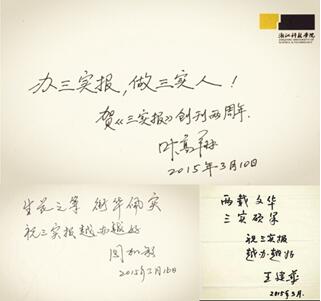 浙江科技学院
ZHEJIANG UNIVERSITY OF
SCIENCE & TECHNOLOGY
办三实报，做三实人！
贺《三实报》创刊两周年.
叶高翔
2015年3月10日
生花之笔 衔华佩实
祝三实报越办越好
2015年3月10日
两载文华
三实硕果
祝三实报
越办越好
2015年3月.